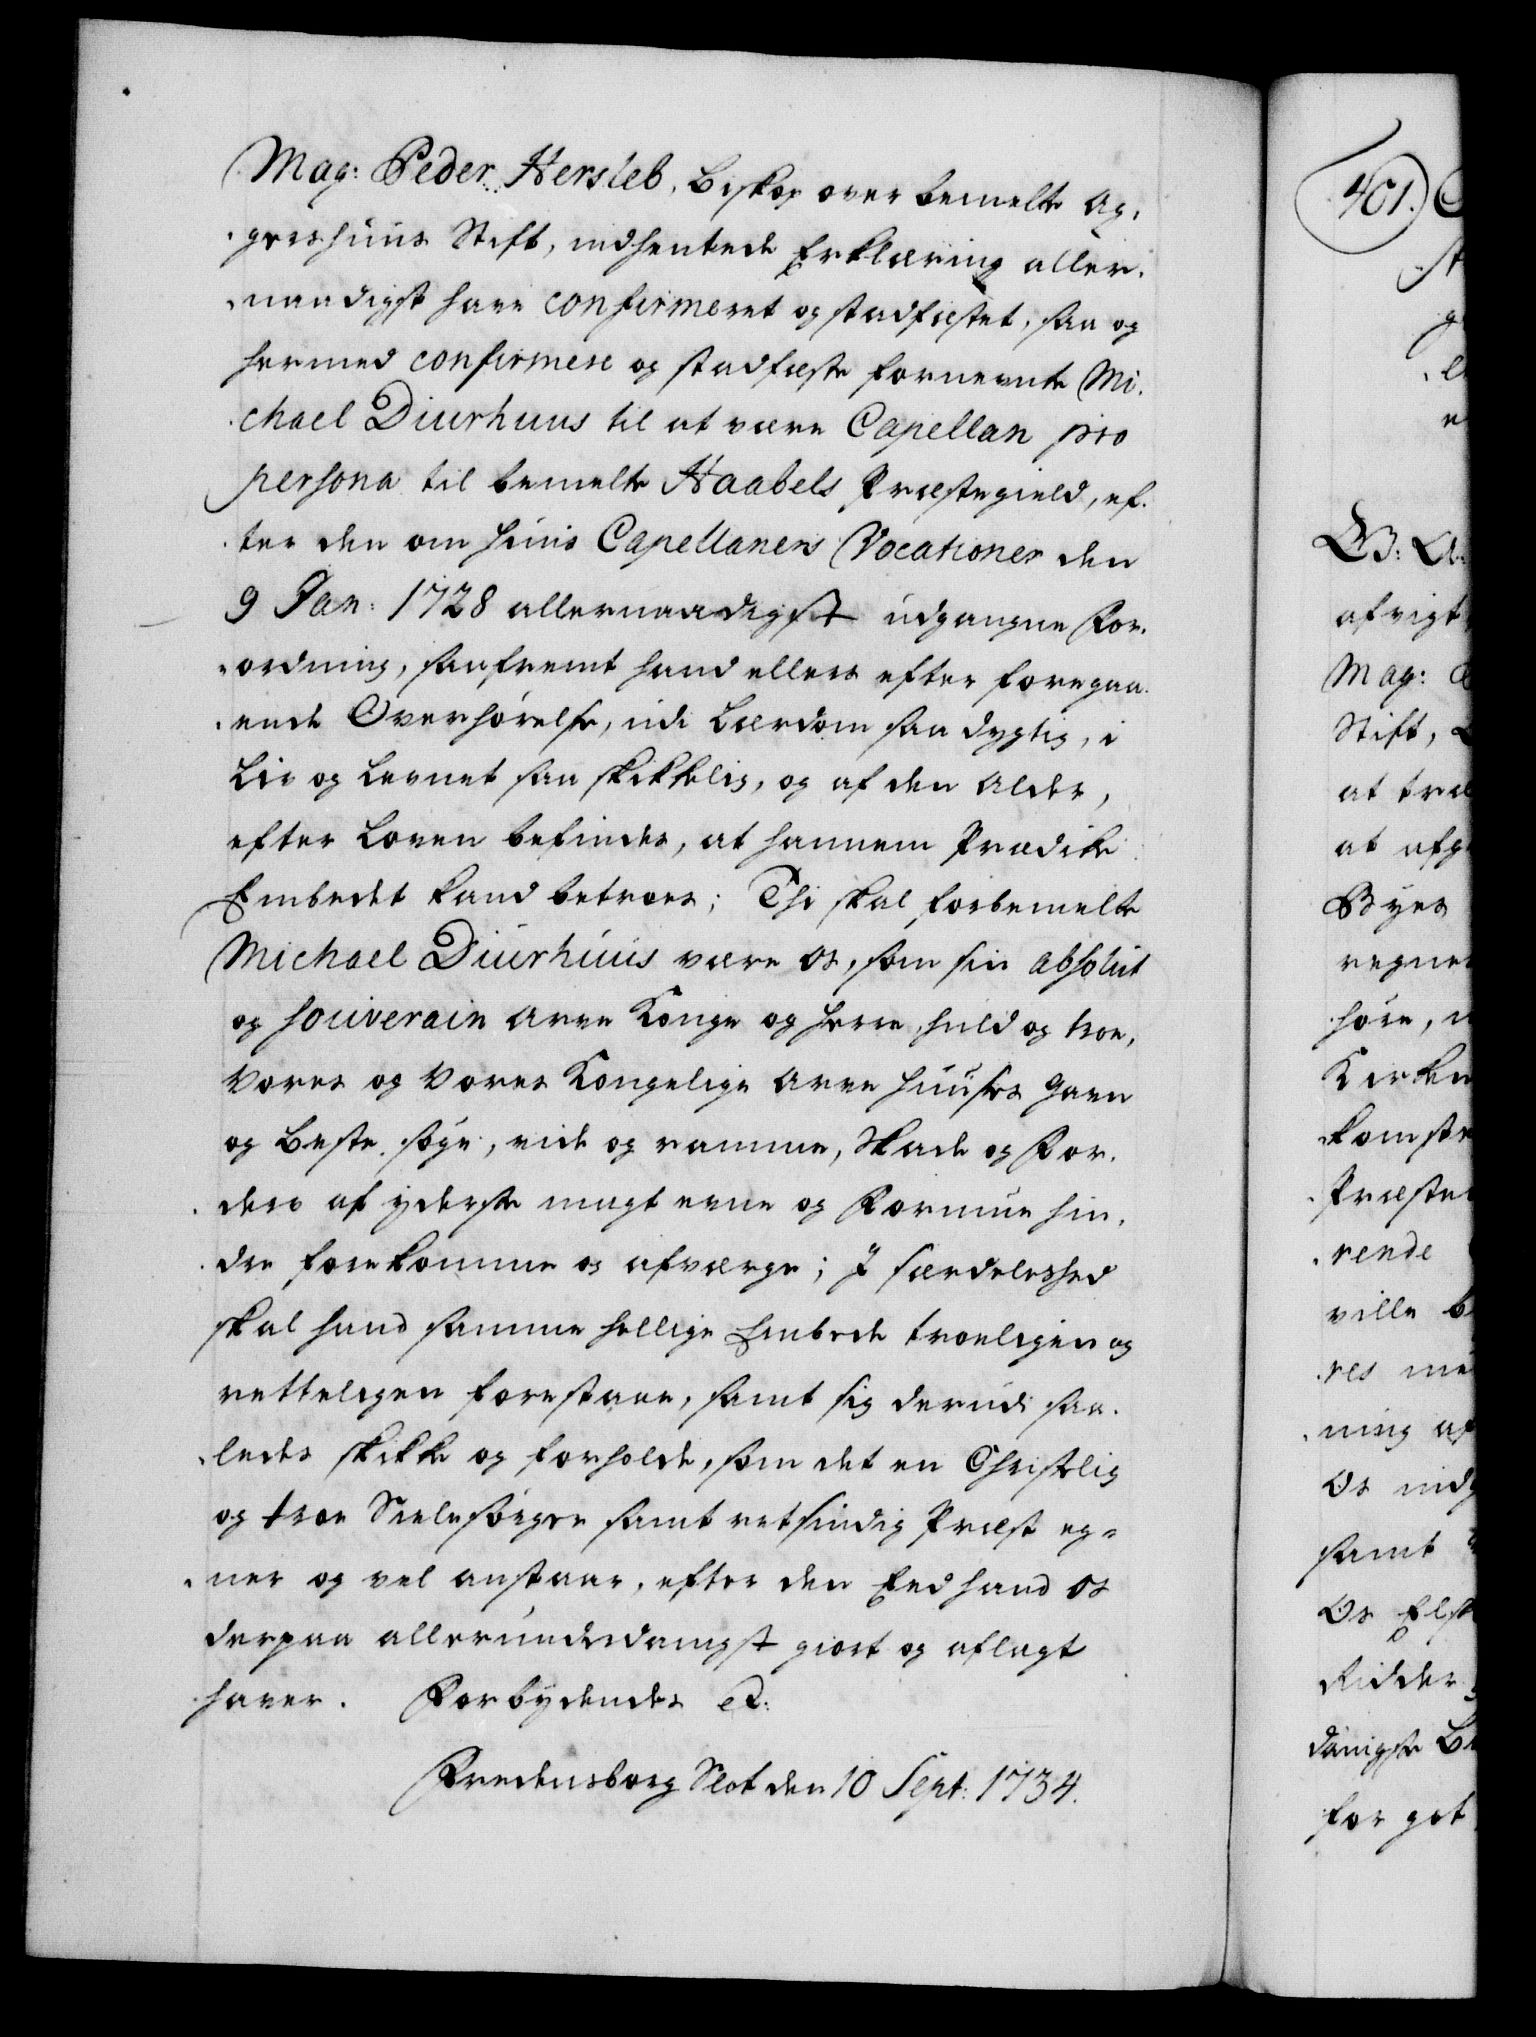 Mag: Peder Hersleb, Biskop over bemelte Ag,
gershuus Stift, indhentede Erklæring aller,
naadigst have confirmeret og stadfæstet, saa og
hermed confirmere og stadfæste fornevnte Mi,
chael Diurhuus til at være Capellan pro
persona til bemelte Haabels Præstegield, ef,
ter den om huus Capellaners Vocationer den
9 Jan: 1728 allernaadigst udgangne For,
ordning, saafremt hand ellers efter foregaa,
ende Overhørelse, udi Lærdom saa dygtig, i
Liv og Levnet saa skikkelig, og af den Alder,
efter Loven befindes, at hannem Prædike
Embedet kand betroes; Thi skal forbemelte
Michael Diurhuus være Os, som sin absolut
og souverain Arve Konge og Herre, huld og troe,
Vores og Vores Kongelige Arve Huuses Gavn
og Beste søge, vide og ramme, Skade og For,
derv af yderste magt evne og Formue hin,
dre forekomme og afværge; I særdeleshed
skal hand samme hellige Embede troeligen og
retteligen forestaae, samt sig derudi saa,
ledes skikke og forholde, som det en Christelig
og troe Siælesørger samt retsindig Præst eg=
ner og vel anstaar, efter den Eed hand Os
derpaa allerunderdanigst giort og aflagt
haver. Forbydendes etc:
Fredensborg Slot den 10 Sept: 1734.
401.
afvigt
Mag:
Stift,
at
at
Byes
høre,
rende
ville
res
ning
Os
samt
Os
Ridder
danigste
for got